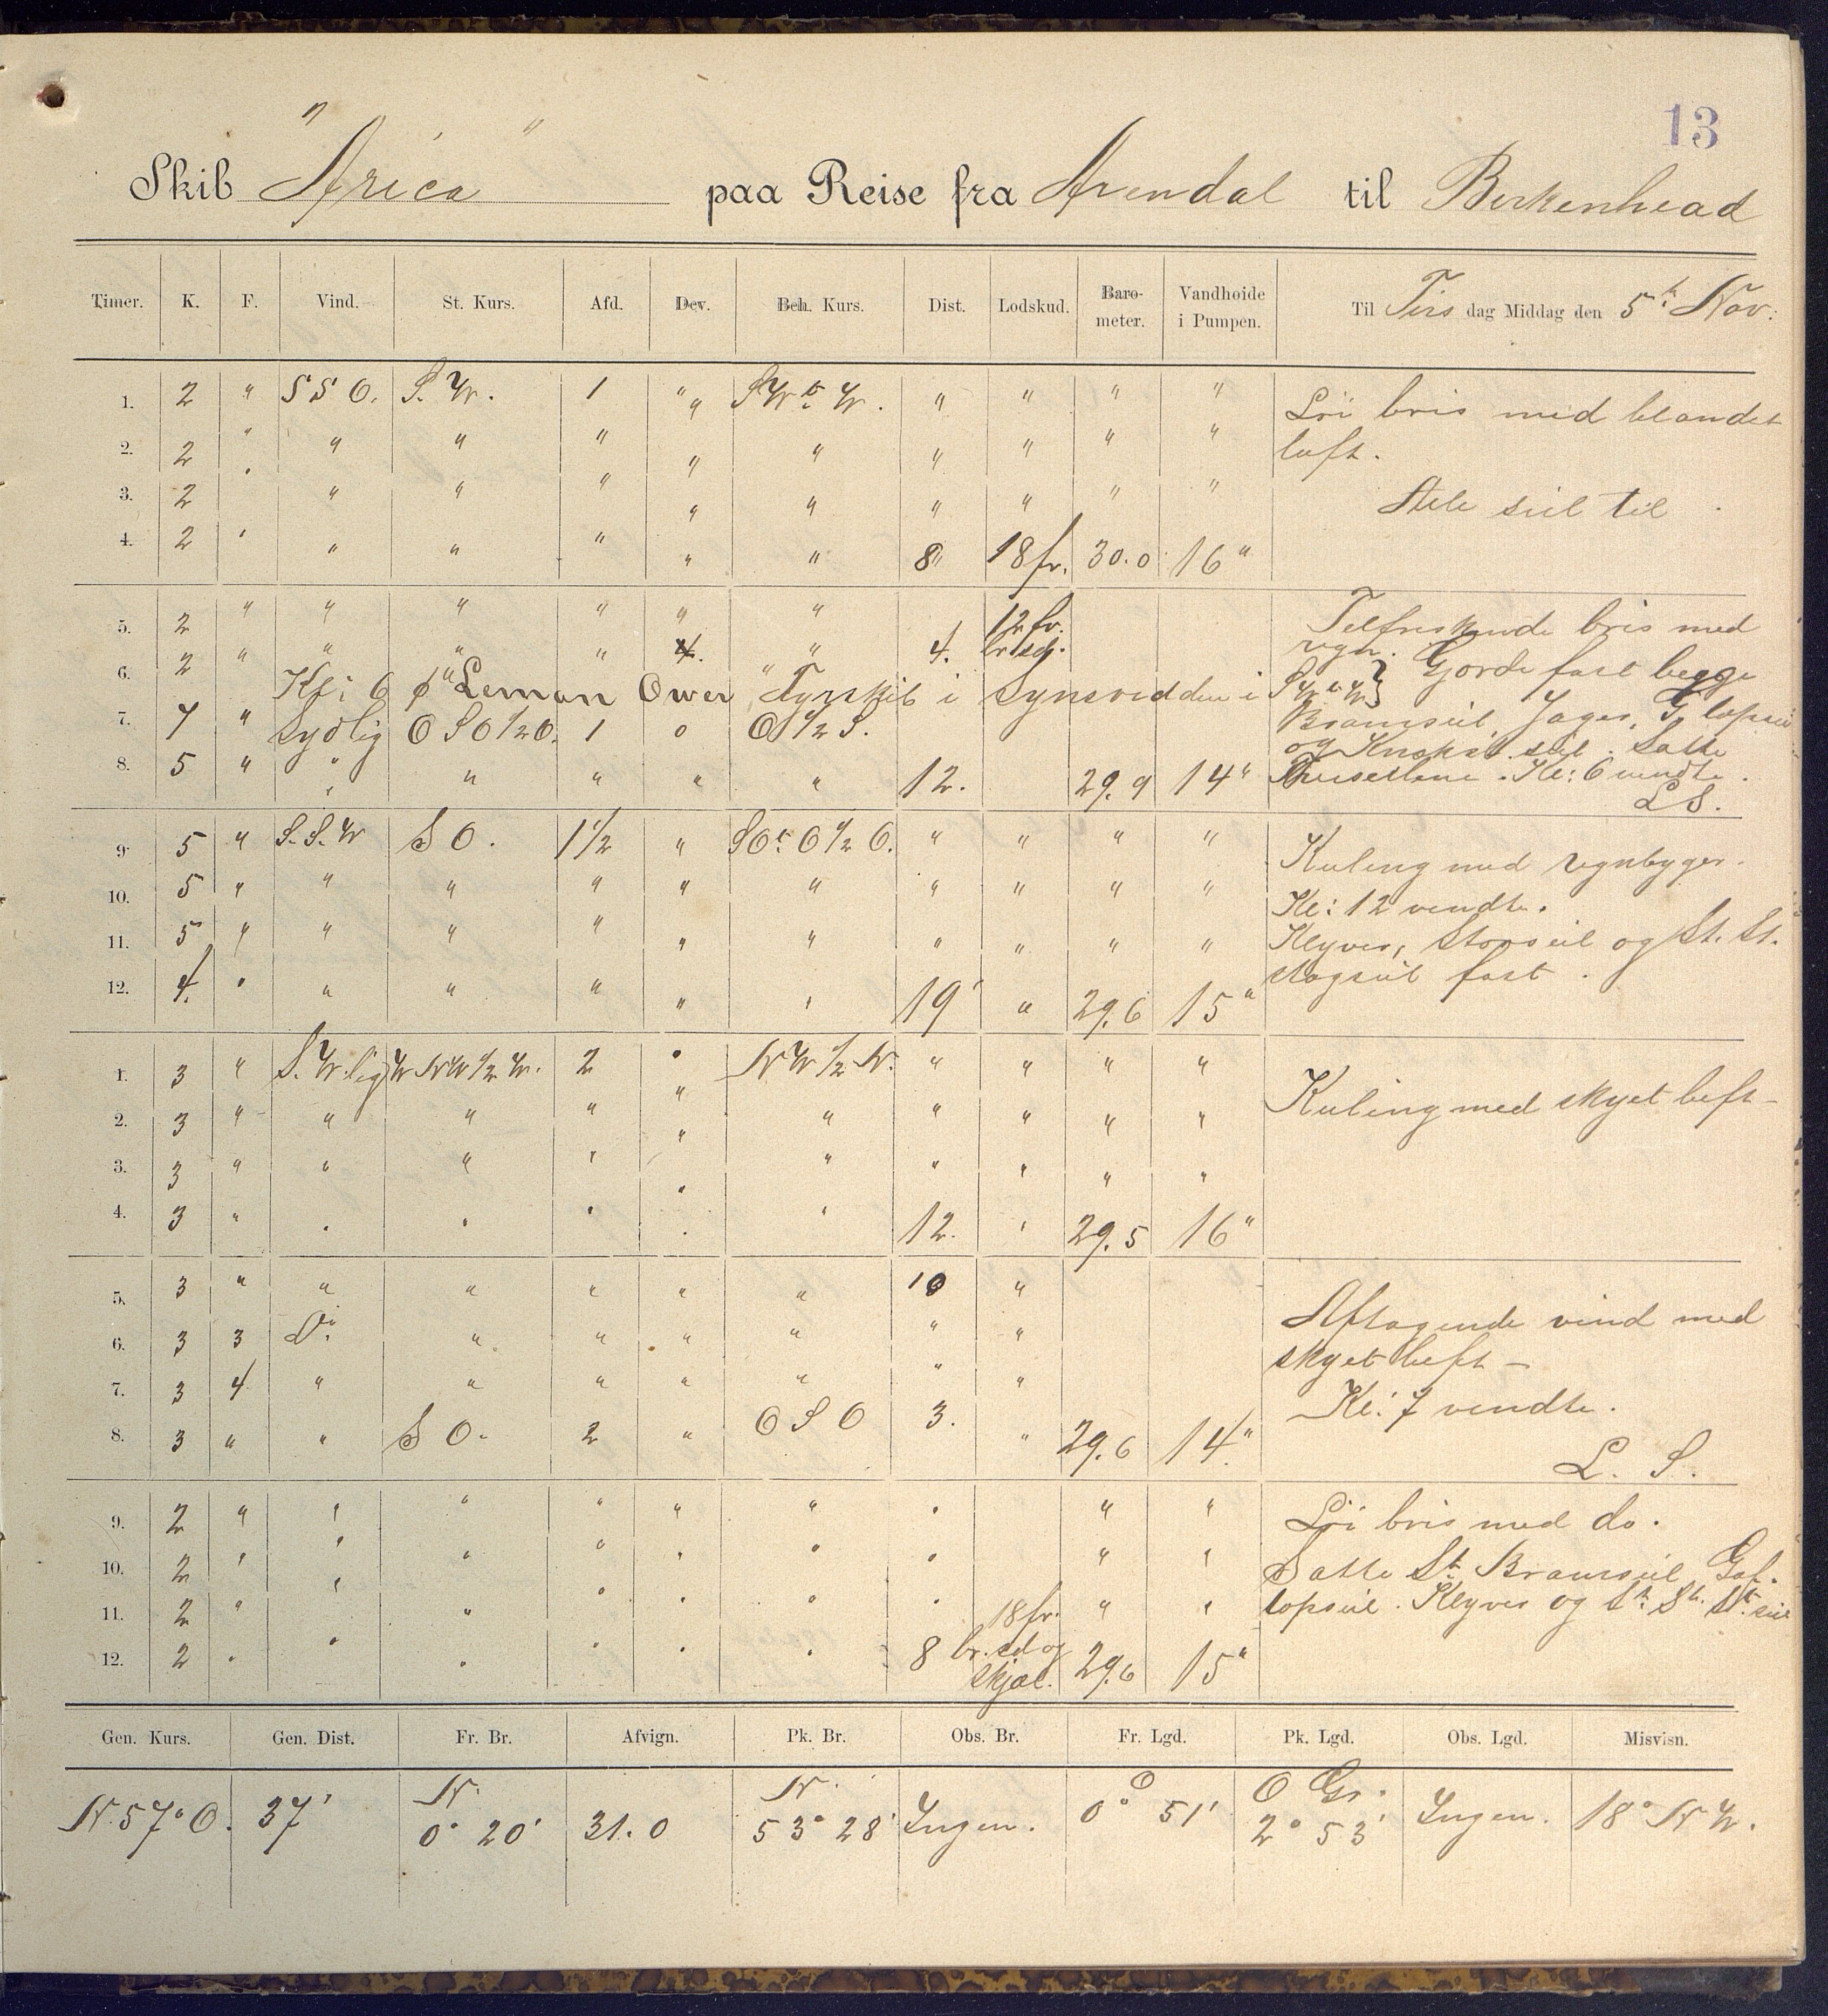 13
Skib "Arica" paa Reise fra Arendal til Birkenhead
Timer. K. F. Vind. St. Kurs. Afd. Dev. Beh. Kurs. Dist. Lodskud. Baro-meter. Vandhoide i Pumpen. Til Tirs dag Middag den 5te Nov:
1. 2 " S S O. S. W. 1 " S W t. W. " " " " Löi bris med blandet
2. 2 " " " " " " " " " " luft.
3. 2 " " " " " " " " " Alle seil til
4. 2 " " " " " " 8" 18 fv. 30.0 16"
5. 2 " " " " " " 12 fv. Tilfriskende bris med
6. 2 " " " " 4. " 4. br. sd. regn. Gjorde fast begge
Kl: 6 p "Leman Ower" Fyrskib i Synsvidden i S W t. W.
7. 7 " Sydlig O S O 1/2 O. 1 " O 1/2 S. Bramseil, Jager, G. topseil
og Satte
8. 5 " " " " " " 12. 29.9 14" Kl: 6 vendte.
L S.
9. 5 " S. S. W S O. 1 1/2 " S O t. O 1/2 O. " " " " Kuling med regnbyger.
10. 5 " " " " " " " " " " Kl: 12 vendte.
11. 5 " " " " " " " " " " Klyver, Storseil og St. St.
12. 4. " " " " " " 19' " 29.6 15" stagseil fast.
1. 3 " S. W. lig W N W 1/2 W. 2 " N W 1/2 N. " " " "
2. 3 " " " " " " " " " " Kuling med skyet luft -
3. 3 " " " " " " " " " "
4. 3 " " " " " " 12. " 29.5 16"
5. 3 " " " " " " 10 " Aftagende vind med
6. 3 3 Do " " " " " " skyet luft -
7. 3 4 " " " " " " " Kl: 7 vendte.
8. 3 " " S O. 2 " O S O 3. " 29.6 14"
L. S.
9. 2 " " " " " " " " " Löi bris med do.
10. 2 " " " " " " " " " Satte St. Bramseil, Gaf-
11. 2 " " " " " " 18 fv. " " topseil. Klyver og St. St. St. seil
12. 2 " " " " " " 8 br. sd og skjæl. 29.6 15"
Gen. Kurs. Gen. Dist. Fr. Br. Afvign. Pk. Br. Obs. Br. Fr. Lgd. Pk. Lgd. Obs. Lgd. Misvisn.
N. 57° O. 37' N. 0° 20' 31.0 N. 53° 28' Ingen. O 0° 51' O Gr. 2° 53' Ingen. 18° N W.